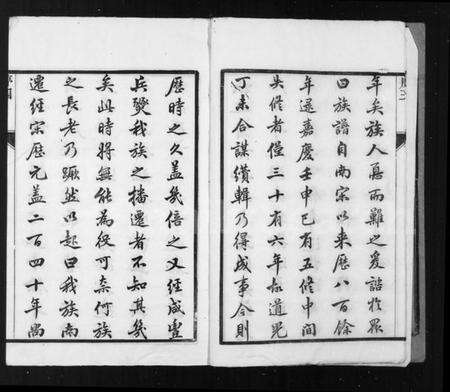 年矣族人急而難之爰諮於眾
曰族譜自南宋以來歷八百餘
年逮嘉慶壬申已有五修中間
失修者僅三十有六年故道光
丁未合謀續輯乃得成事今則
歷時之久蓋幾倍之又經咸豐
兵燹我族之播遷者不知其幾
矣此時將無能為役可奈何族
之長老乃蹶然以起曰我族南
遷經宋歷元蓋二百四十年尚